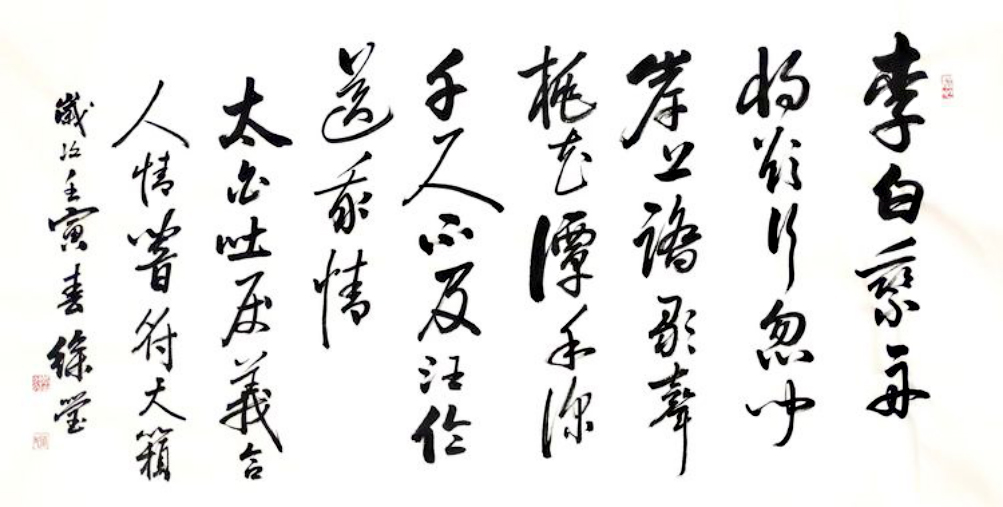 李白乘舟
將欲行忽聞
岸上踏歌聲
桃花潭水深
千尺不及汪倫
送我情
太白吐義合
人情響符天籟
歲次壬寅春徐瑩